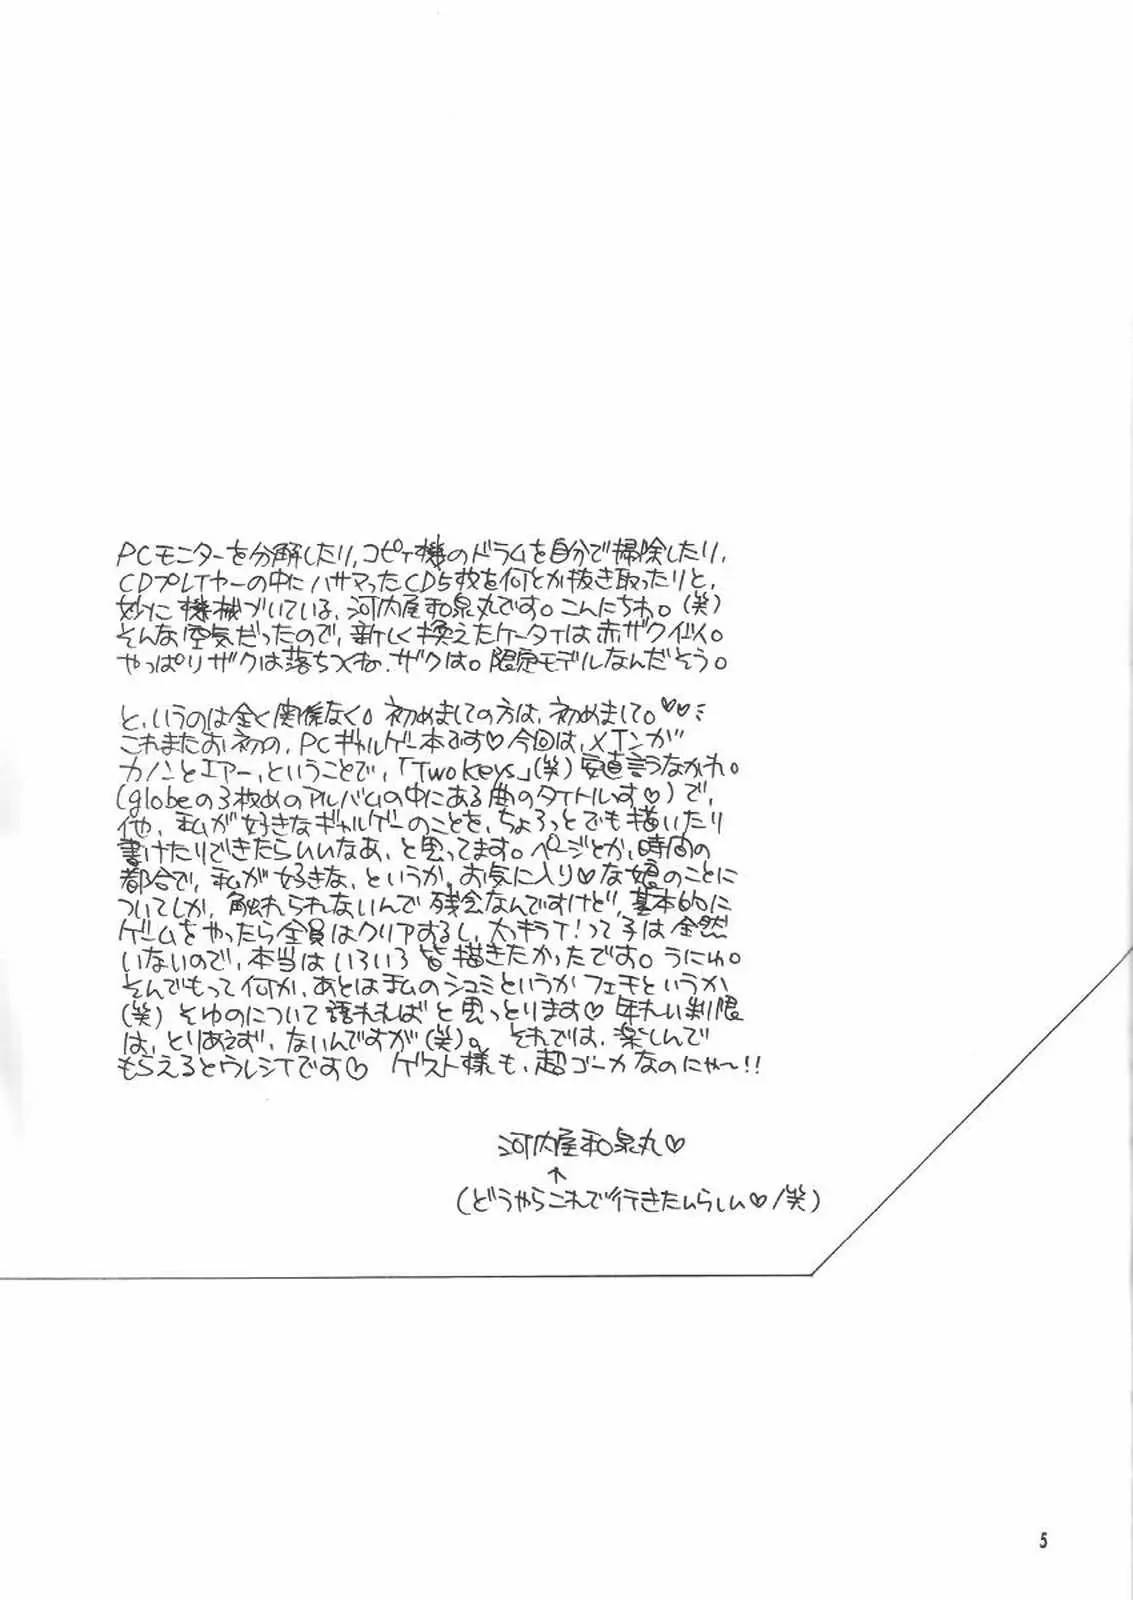 PCモニターを分解したり、コピー機のドラムを自分で掃除したり、
CDプレイヤーの中にハサマったCD5枚を何とか抜き取ったりと、
妙に機械づいている、河内屋和泉丸です。こんにちわ。(笑)
そんな空気だったので、新しく換えたケータイは赤ザク仕様。
やっぱりザクは落ちつくね、ザクは。限定モデルなんだそう。
と、いうのは全く関係なく。初めましての方は、初めまして。♡♡
これまたお初の、PCギャルゲー本です♡今回は、メインが
カノンとエアー、ということで、「Two Keys」(笑)安直言うなかれ。
(globeの3枚めのアルバムの中にある曲のタイトルっす♡)で、
他、私が好きなギャルゲーのことを、ちょろっとでも描いたり
書けたりできたらいいなあ、と思ってます。ページとか、時間の
都合で、私が好きな、というか、お気に入り♡な娘のことに
ついてしか、触れられないんで残念なんですけど、基本的に
ゲームをやったら全員はクリアするし、大っキライ!って子は全然
いないので、本当はいろいろ皆描きたかったです。うにゅ。
そんでもって何か、あとは私のシュミというかフェチというか
(笑)そゆのについて語れればと思っとります♡年れい制限
は、とりあえず、ないんですが(笑)。それでは、楽しんで
もらえるとウレシイです♡ ゲスト様も、超ゴーカなのにゃ〜!!
河内屋和泉丸♡
↑
(どうやらこれで行きたいらしい♡/笑)
5